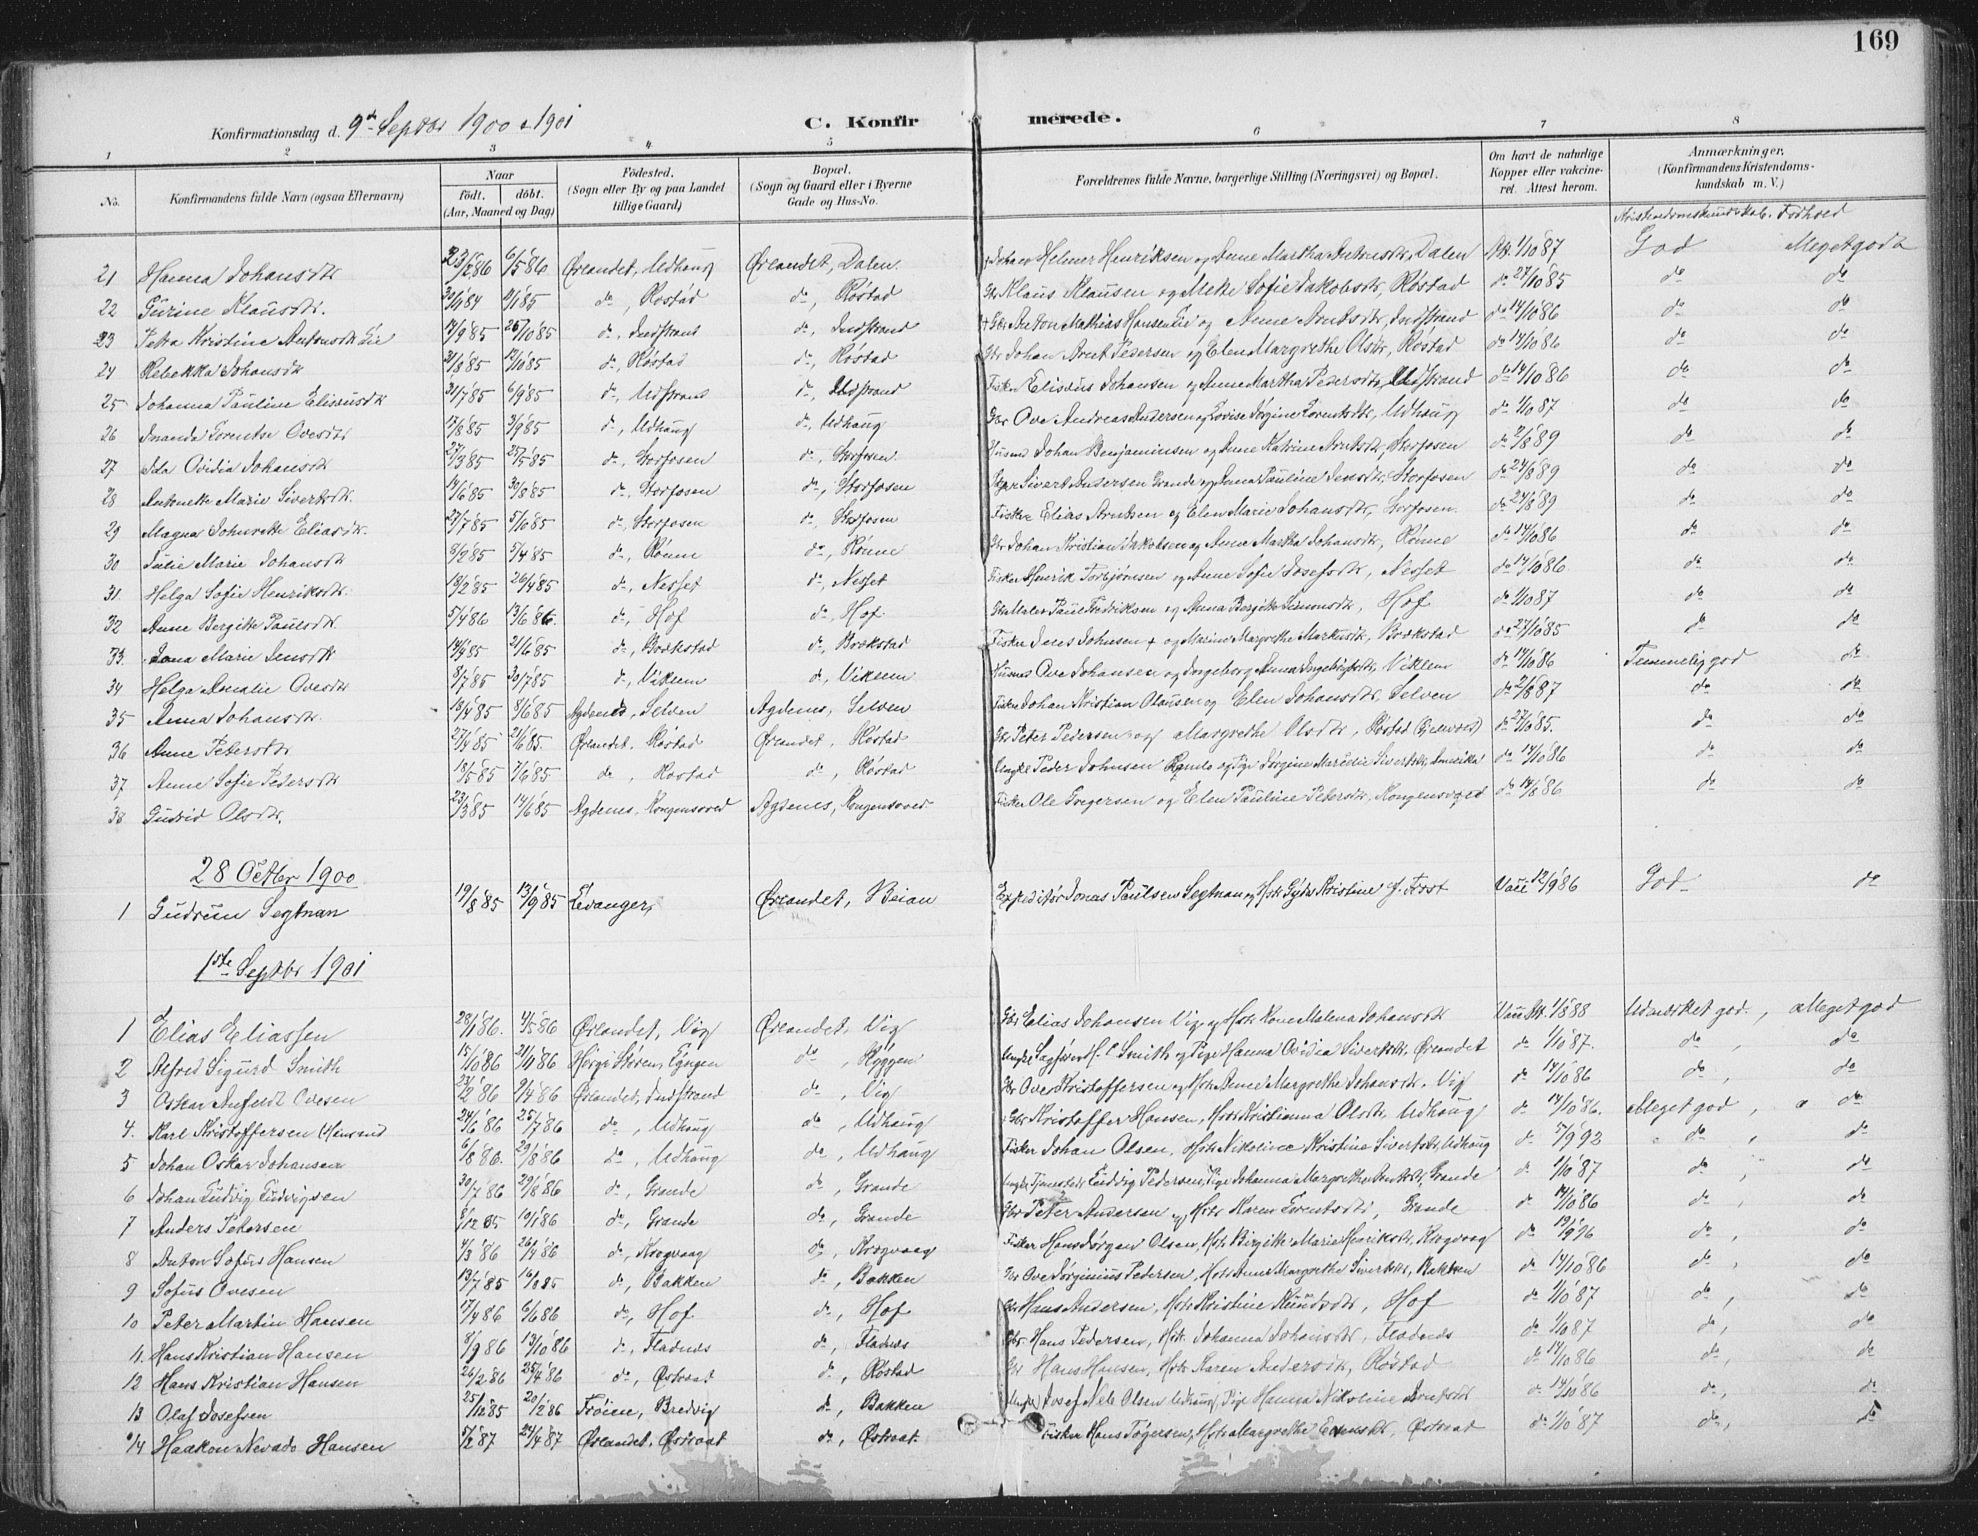 169
Konfirmationsdag d. 9de Septbr 1900 & 1901
C. Konfirmerede.
1 2 3 4 5 6 7 8
No. Konfirmandens fulde Navn (ogsaa Efternavn) Naar født. døbt. (Aar, Maaned og Dag) Fødested. (Sogn eller By og paa Landet tillige Gaard) Bopæl. (Sogn og Gaard eller i Byerne Gade og Hus-No. Forældrenes fulde Navne, borgerlige Stilling (Næringsvei) og Bopæl. Om havt de naturlige Kopper eller vaccineret. Attest herom. Anmærkninger. (Konfirmandens Kristendomskundskab m. V.)
Kristendomskundskab. Forhold
21 Hanna Johansdtr 23/2 86 6/5 86 Ørlandet, Udhaug Ørlandet, Dalen Johan Helmer Henriksen og Anne Martha Antonsdtr, Dalen 1/10 87 God Megetgodt
22 Gurine Klausdtr. do, Røstad do, Røstad Gbr Klaus Klausen og Mette Sofie Jakobsdtr, Røstad do 27/10 85 do do
23 Petra Kristine Antonsdtr Lie 14/9 85 25/10 85 do, Indstrand do, Indstrand Gbr Anton Mathias Hansen Lie og Anne Arntsdtr, Indstrand do 14/10 86 do do
24 Rebekka Johansdtr 21/8 85 do, Røstad do, Røstad Gbr Johan Arnt Pedersen og Elen Margrethe Olsdtr, Røstad do 14/10 86 do do
25 Johanna Pauline Eliseusdtr 31/7 85 6/9 85 do, Udstrand do, Udstrand Fisker Eliseus Johansen og Anne Martha Pedersdtr, Udstrand do 14/10 86 do do
26 Inanda Lorentse Ovesdtr 17/8 85 3/9 85 do, Udhaug do, Udhaug Gbr Ove Andreas Andersen og Lovise Jørgine Lorentsdtr, Udhaug do 1/10 87 do do
27 Ida Ovidia Johansdtr 27/3 85 25/5 85 do, Storfosen do, Storfosen Husmd Johan Benjaminsen og Anne Katrine Arntsdtr, Storfosen do 2/8 89 do do
28 Antonette Marie Sivertsdtr. 14/6 85 30/8 85 do, Storfosen do, Storfosen Sivert Andersen Grande og Anna Pauline Jensdtr, Storfosen do 24/8 89 do do
29 Magna Johnrette Eliasdtr. 27/7 85 5/10 85 do, Storfosen do, Storfosen Fisker Elias Arntsen og Elen Marie Johansdtr, Storfosen do 24/8 89 do do
30 Julie Marie Johansdtr 8/2 85 5/4 85 do, Rønne do, Rønne Gbr Johan Kristian Jakobsen og Anne Martha Johansdtr, Rønne do 14/10 86 do do
31. Helga Sofie Henriksdtr. 18/2 85 26/4 85 do, Nesset do, Nesset Fisker Henrik Torbjørnsen og Anne Sofie Josefsdtr, Nesset do 14/10 86. do do
32 Anne Bergitte Paulsdtr 5/4 86 13/6 86. do, Hof do, Hof Maler Paul Fredriksen og Anna Bergitte Simonsdtr, Hof do 1/10 87 do do
33. Jona Marie Jensdtr 14/4 85 21/6 85 do, Brækstad do, Brækstad Fisker Jens Johnsen + og Marine Margrethe Markusdtr, Brækstad do 27/10 85 do do
34 Helga Amalie Ovesdtr 8/7 85 30/7 85 do, Viklem do, Viklem Husmd Ove Johansen og Ingeborg Anna Ingebrigtsdtr, Viklem do 14/10 86 Temmelig god do
35 Anna Johansdtr. 18/4 85 8/6 85 Agdenes, Selven Agdenes, Selven Fisker Johan Kristian Olausen og Elen Johansdtr, Selven do 2/8 87 do do
36 Anne Petersdtr 27/4 85 21/6 85. Ørlandet, Røstad Ørlandet, Røstad Gbr Peter Pedersen og Margrethe Olsdtr, Røstad do 27/10 85. do do
37 Anne Sofie Pedersdtr 18/5 85 7/6 85 do, Røstad do, Røstad Ungkl Peder Johnsen og Pige Jørgine Marselie Sivertsdtr, Amerika do 14/10 86 do do
38 Gudrid Olsdtr. 23/3 85 14/6 85 Agdenes, Kongensvold Agdenes, Kongensvold Fisker Ole Gregersen og Elen Pauline Petersdtr, Kongensvold do 14/8 86 do do
28 Octbr 1900
1 Gudrun Segtnan 19/8 85 13/9 85 Levanger, Ørlandet, Beian Expeditør Jonas Paulsen Segtnan og Hstr Gyda Kristine f. Frost Vacc 12/9 86 God do
1ste Septbr 1901
1 Elias Eliassen 28/1 86. 4/5 86 Ørlandet, Vig Ørlandet, Vig Gbr Elias Johansen Vig og Hstr Malena Johansdtr Vacc Att. 1/8 88 Udmærket god, Megetgod
2 Alfred Sigurd Smith 15/10 86 21/11 86 Støren, do, Ryggen Smith og Pige Hanna Ovidia Sivertsdtr, Ørlandet do 1/10 87. do, do
3 Oskar Anfeldt Ovesen 23/2 86 9/4 86 Ørlandet, Indstrand do, Vig Gbr Ove Kristoffersen og Hstr Anne Margrethe Johansdtr, Vig do 14/10 86 do, do
4. Karl Kristoffersen (Hansen) 24/6 86 25/7 86 do, Udhaug do, Udhaug Gbr Kristoffer Hansen, Hstr Kristianna Olsdtr, Udhaug do 14/10 86. Meget god, do
5 Johan Oskar Johansen 6/8 86. 29/8 86 do, Udhaug do, Udhaug Fisker Johan Olsen, Hstr Nikoline Kristine Sivertsdtr, Udhaug do 5/9 92 do, do
6 Johan Ludvig Ludvigsen 30/7 86 29/8 86 do, Grande do, Grande Ludvig Pedersen, Pige Johanna Margrethe Arntsdtr, Grande do 1/10 87 do, do
7 Anders Petersen 10/1 86 do, Grande do, Grande Gbr Peter Andersen og Hstr Karen Lorentsdtr, Grande do 14/10 86 do, do
8 Anton Sofus Hansen 4/3 86 26/4 86 do, Krogvaag do, Krogvaag Fisker Hans Jørgen Olsen, Hstr Birgitte Marie Henriksdtr, Krogvaag do 19/9 96 do, do
9 Sofus Ovesen 13/7 85 16/8 85 do, Bakken do, Bakken Gbr Ove Jørginius Pedersen, Hstr Anne Margrethe Sivertsdtr, Bakken do 14/10 86 do, do
10 Peter Martin Hansen 17/4 86 6/6 86 do, Hof do, Hof Gbr Hans Andersen, Hstr Kristine Knudsdtr, Hof do 1/10 87 do, do
11. Hans Kristian Hansen 8/9 86 13/10 86 do, Fladnes do, Fladnes Gbr Hans Pedersen, Hstr. Johanna Johansdtr, Fladnes do 1/10 87 do, do
12 Hans Kristian Hansen 26/2 86 25/4 86 do, Østraat do, Røstad Gbr Hans Hansen, Hstr Karen Andersdtr, Røstad do 14/10 86 do, do
13 Olaf Josefsen 25/12 85 20/2 86 Frøien, Bredvig do, Bakken (Ungkl) Josef Olsen Udhaug, Pige Hanna Nikoline Arntsdtr do 14/10 86 do, do
14 Haakon Nevado Hansen 5/2 87 24/4 87 Ørlandet, Østraat do, Østraat. Fisker Hans Tøgersen, Hstr Margrethe Østraat do 1/10 87 do, do